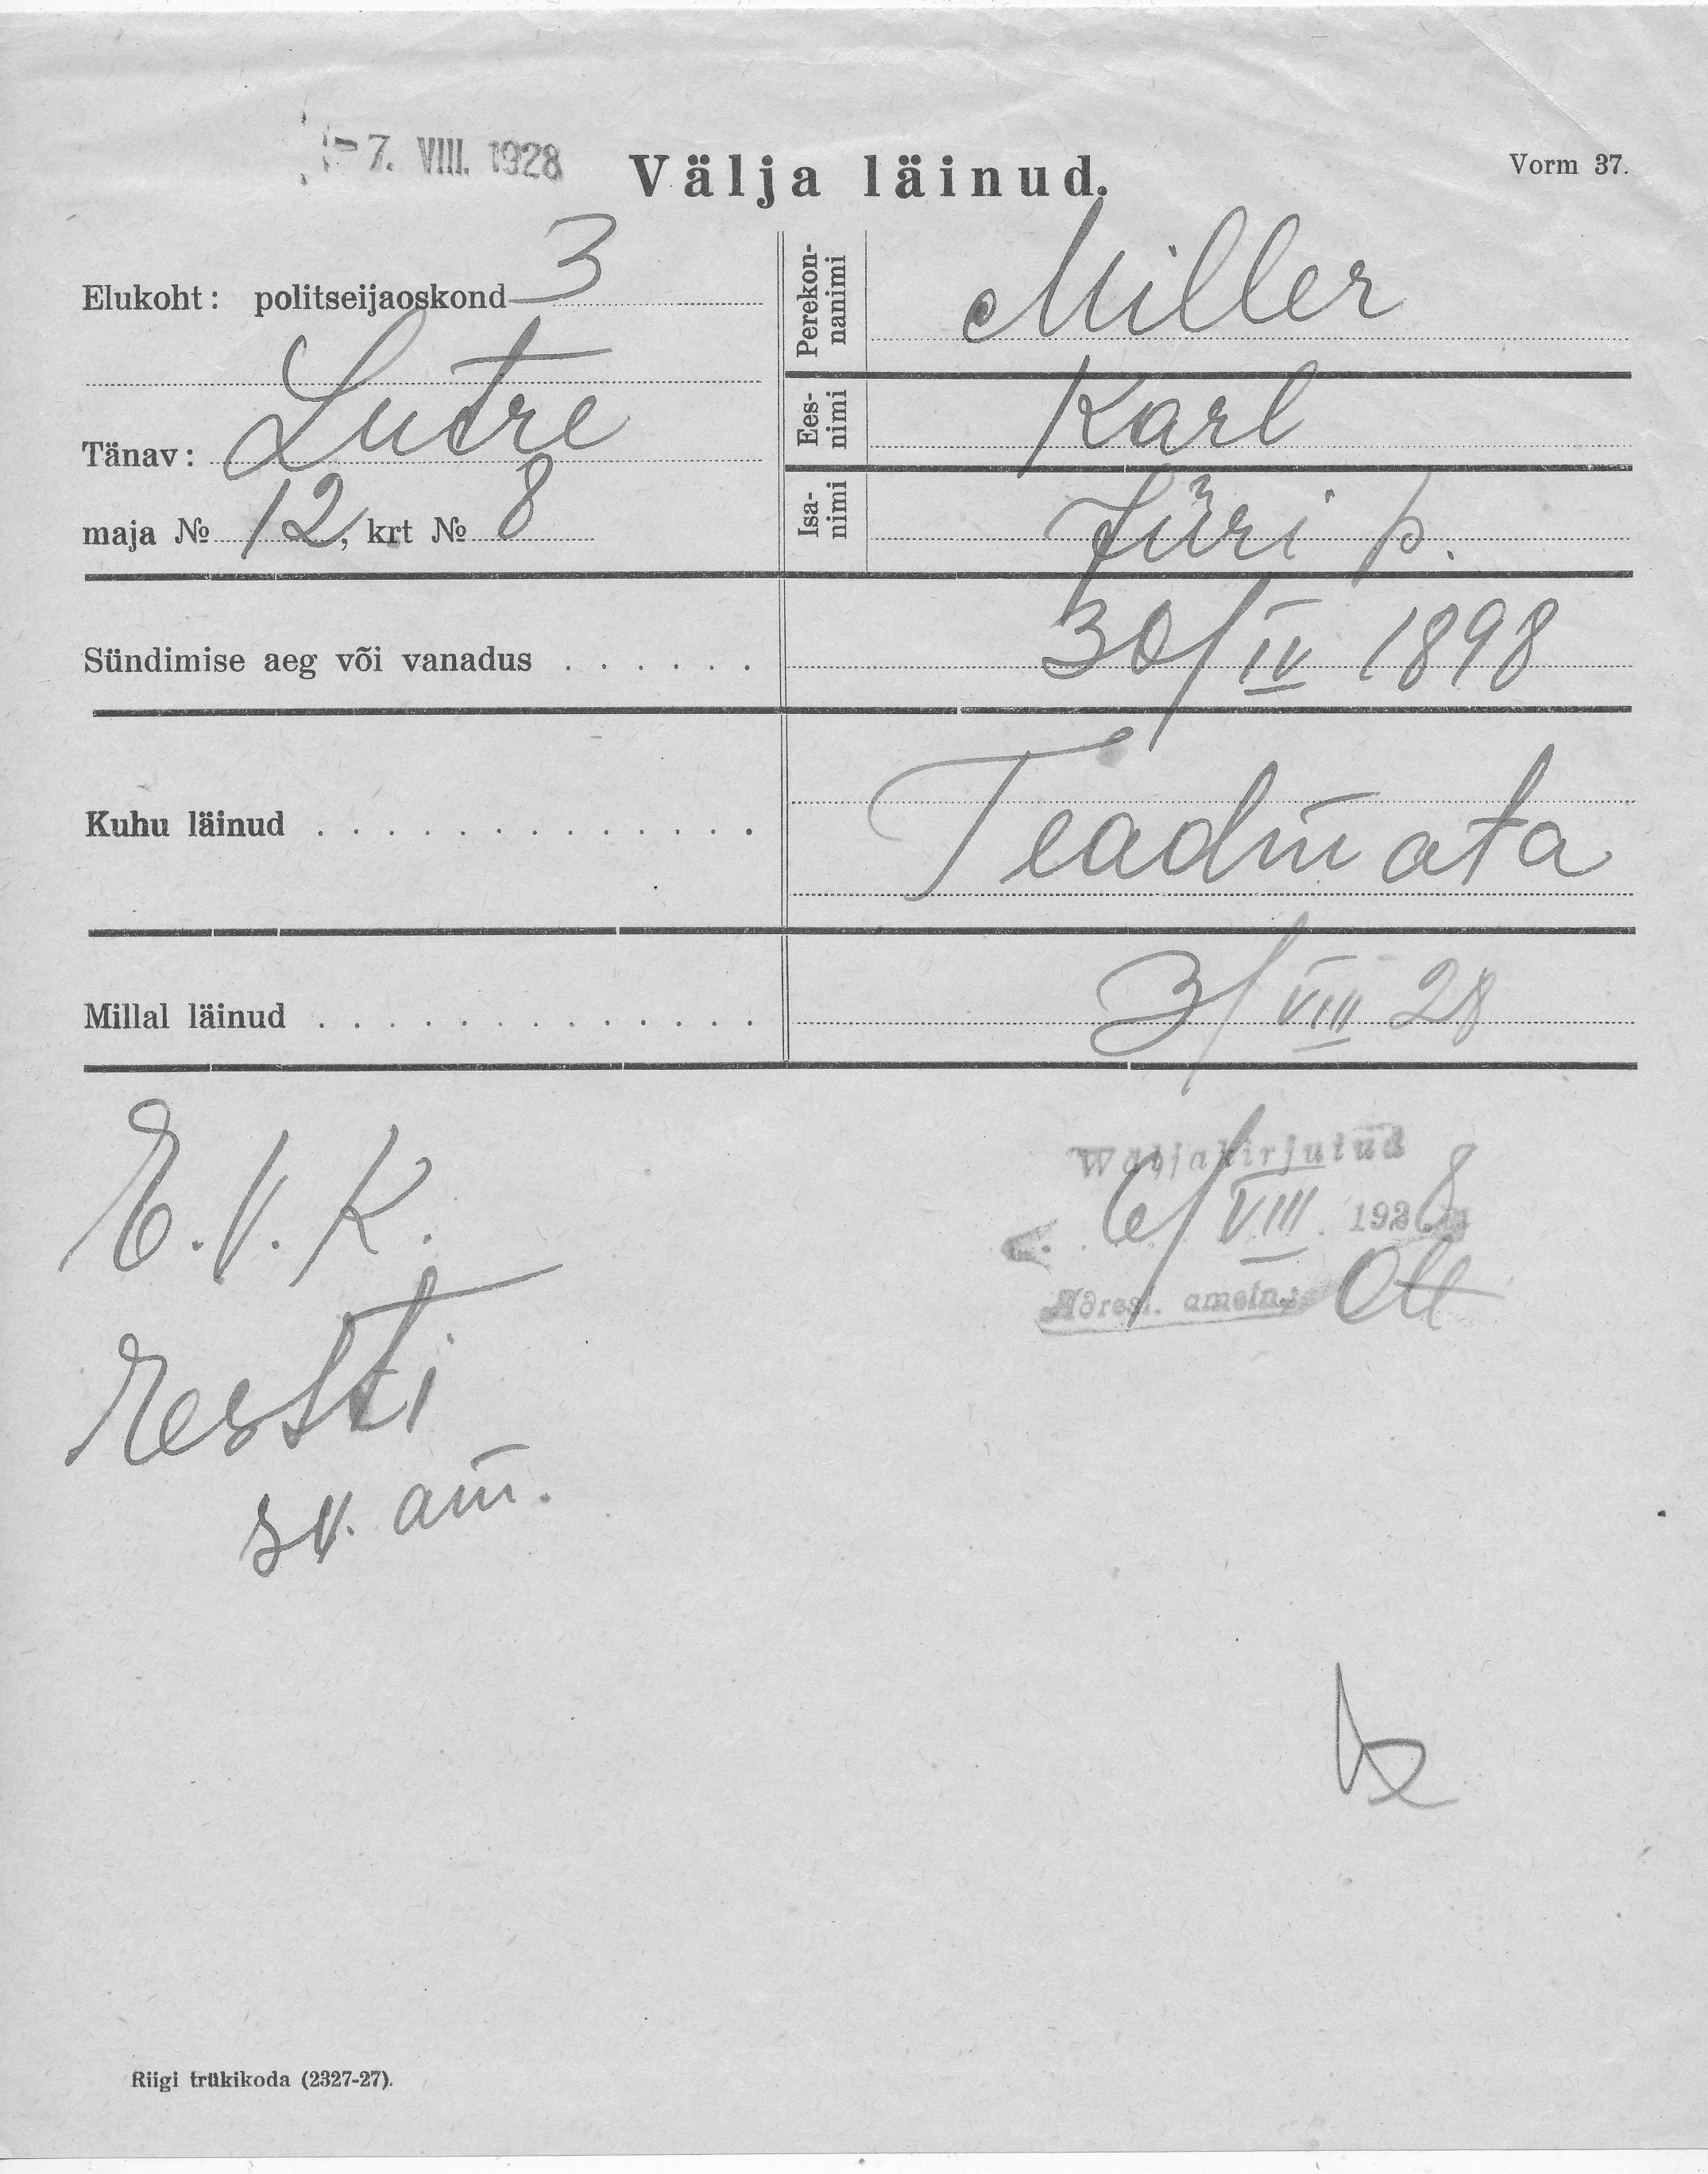 - 7. VIII. 1928
Välja läinud.
Vorm 37.
Elukoht: politseijaoskond 3
Tänav: Lutre
maja № 12, krt № 8
Perekon-
nanimi
Miller
Ees-
nimi
Karl
Isa-
nimi
Jüri p.
Sündimise aeg või vanadus . . . . . . 30/IV 1898
Kuhu läinud . . . . . . . . . . . . . Teadmata
Millal läinud . . . . . . . . . . . . . 3/VIII 28
E.V.K.
Eesti
sv. am.
Wäljakirjutud
6/VIII 1928
Adress. ametn.
Riigi trükikoda (2327-27).